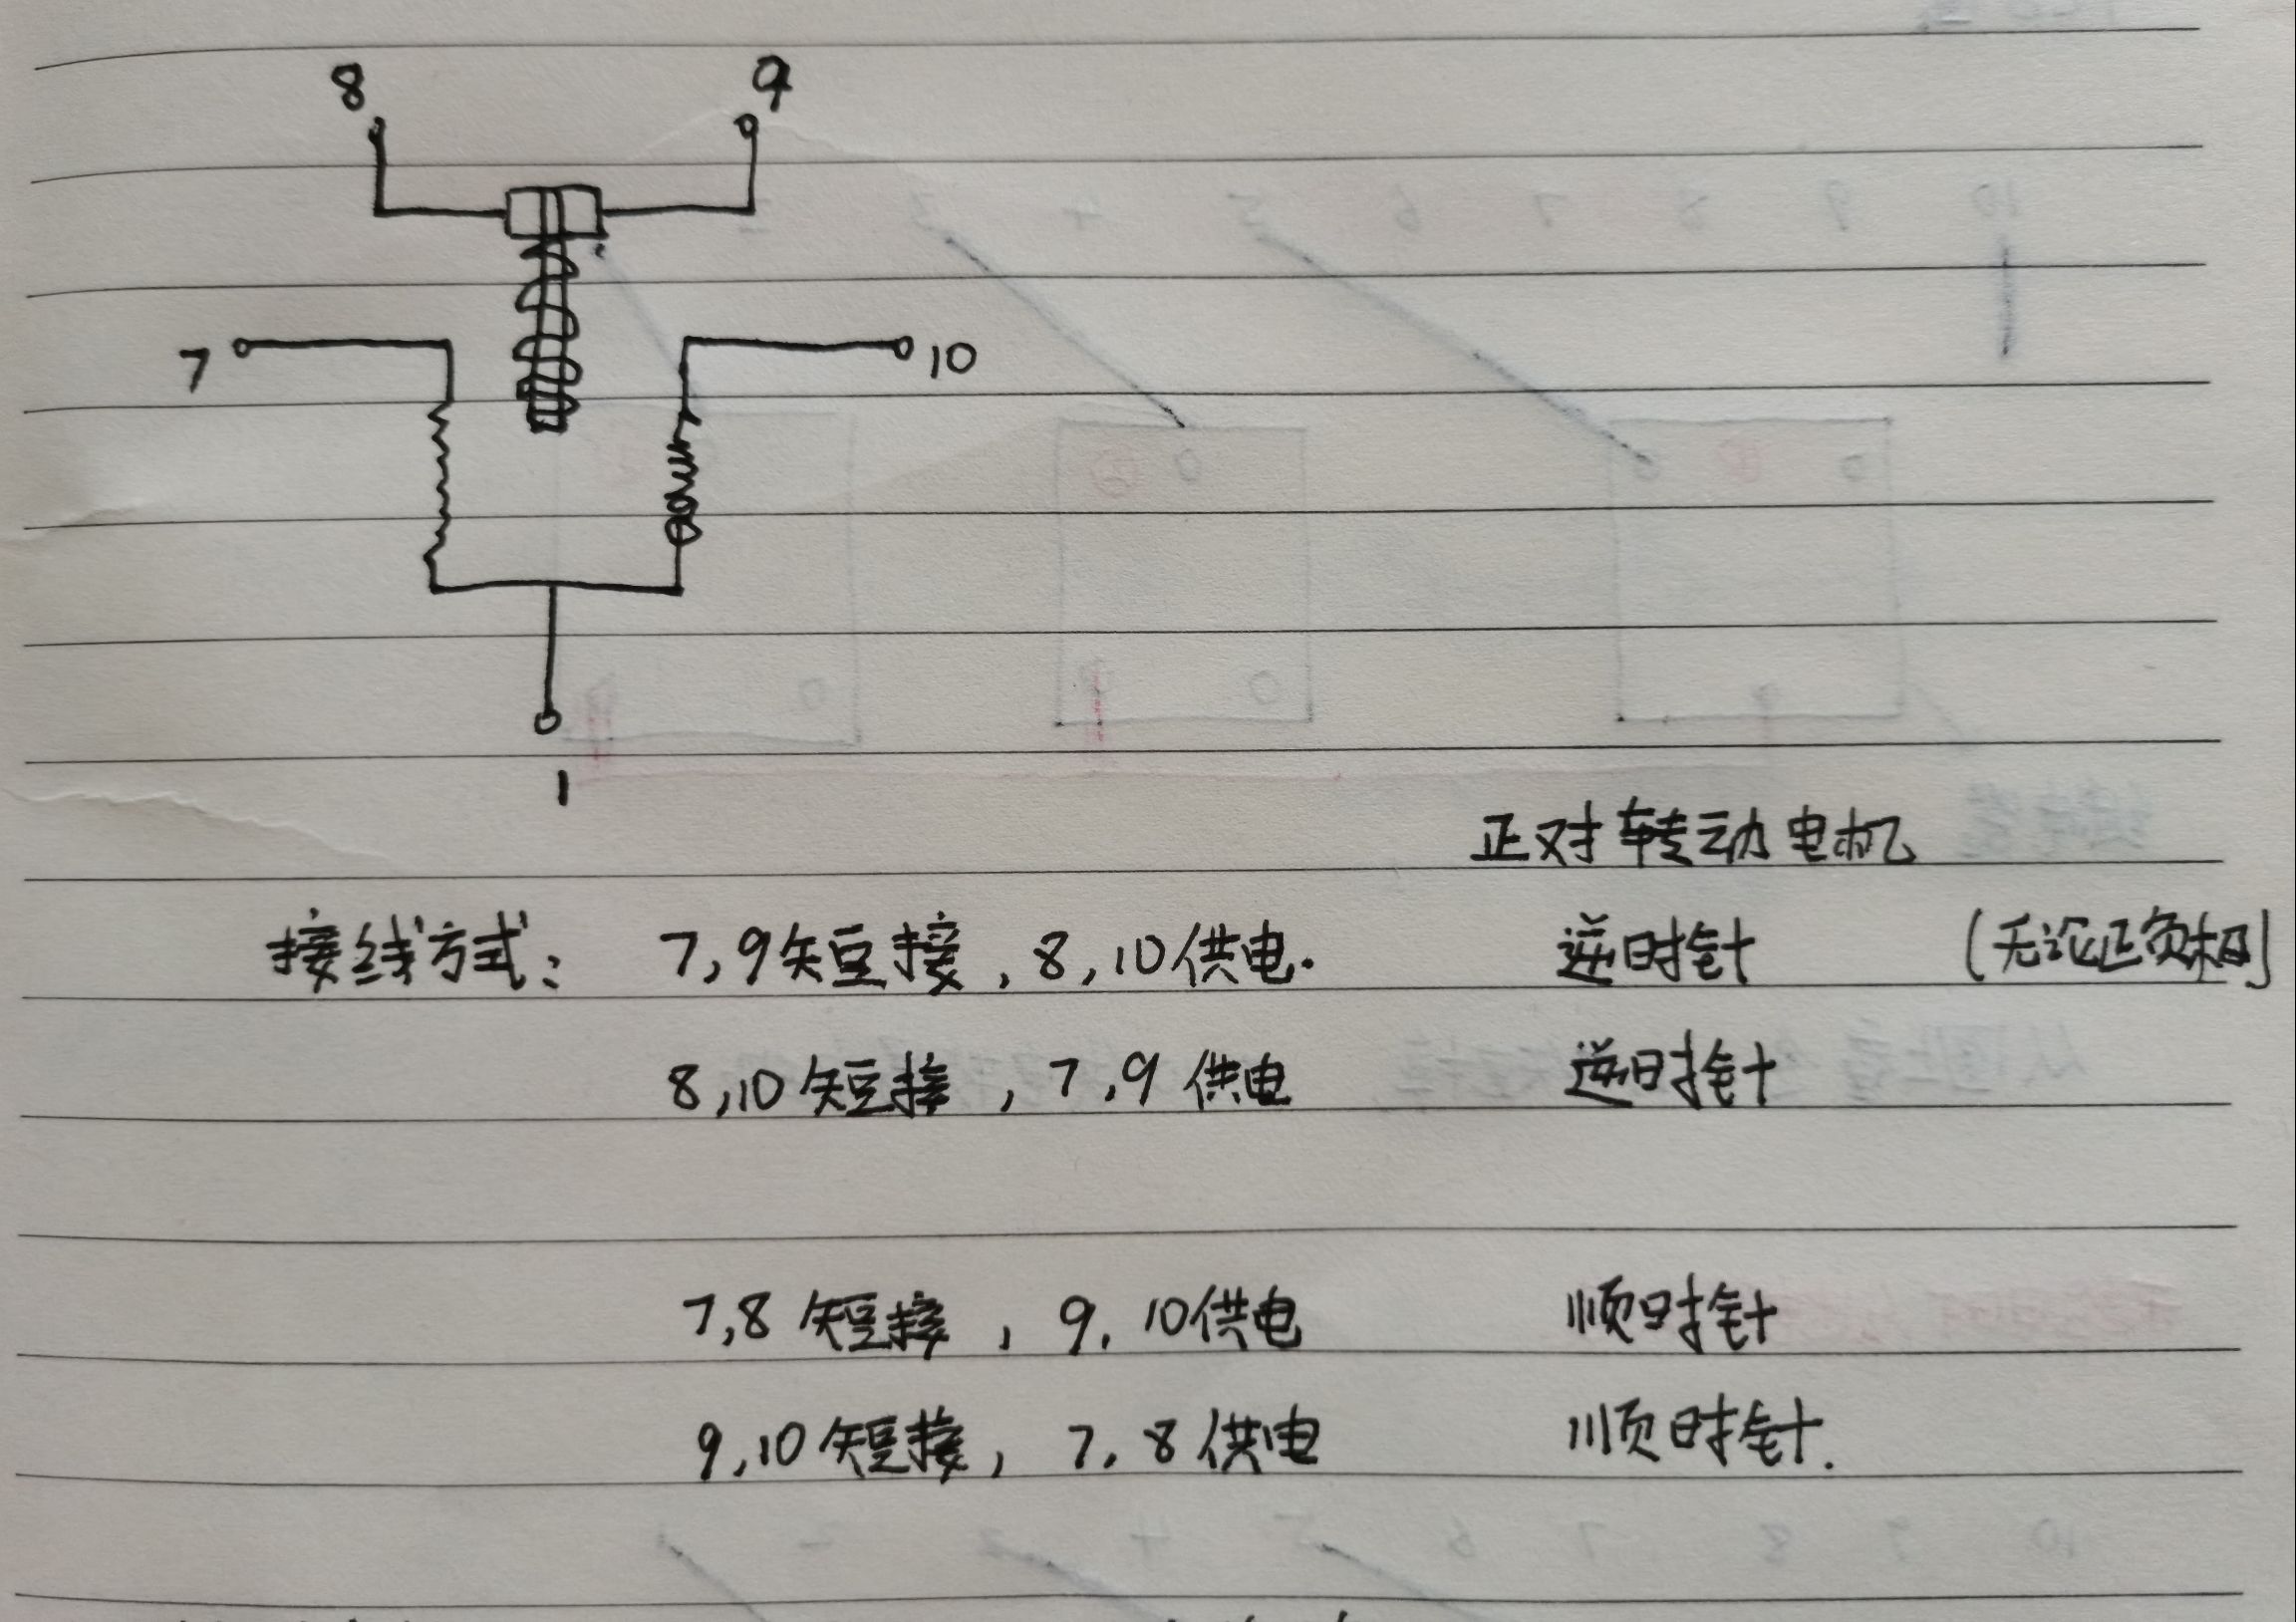 8 9
7 10
1
正对转动电机
接线方式: 7,9短接,8,10供电. 逆时针 (无论正负相)
8,10短接,7,9供电 逆时针
7,8短接,9,10供电 顺时针
9,10短接,7,8供电 顺时针.